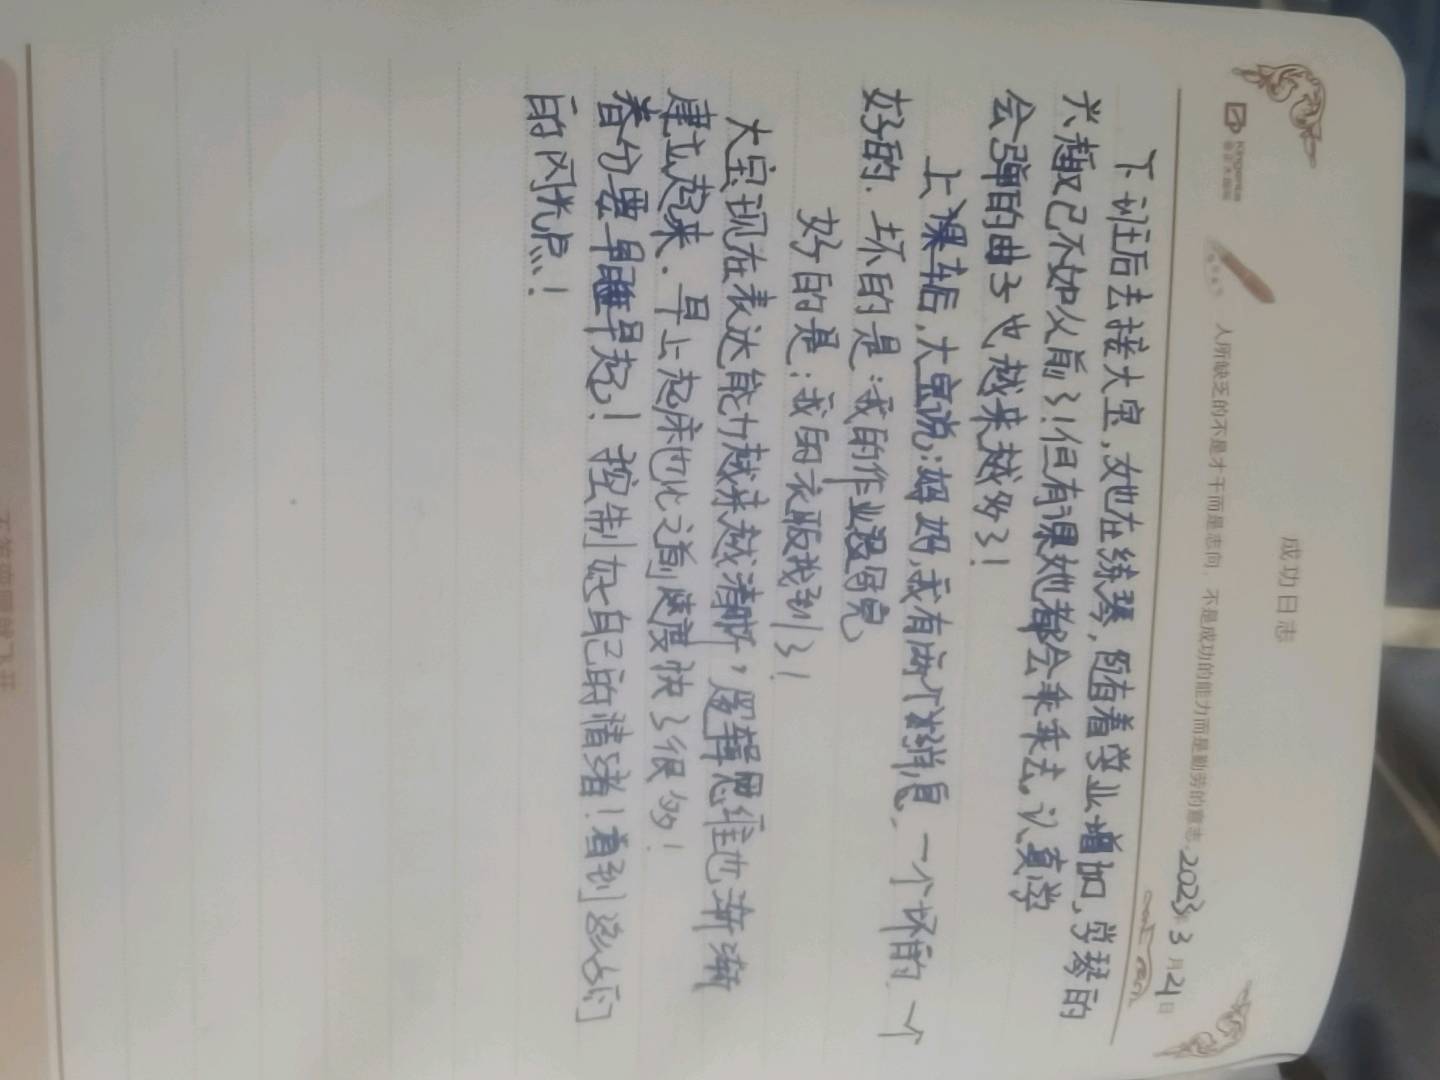 成功日志
人所缺乏的不是才干而是志向，不是成功的能力而是勤劳的意志。
2023年3月21日
下班后去接大宝，她在练琴，随着学业增加，学琴的
兴趣已不如以前了！但有课她都会乖乖去。认真学
会弹的曲子也越来越多了！
上课车后，大宝说：妈妈，我有两个消息，一个坏的，一个
好的．坏的是：我的作业没写完
好的是：我的衣服找到了！
大宝现在表达能力越来越清晰，逻辑思维也渐渐
建立起来．早上起床也比之前速度快了很多！
春分要早睡早起！控制好自己的情绪！看到孩子们
的闪光点！